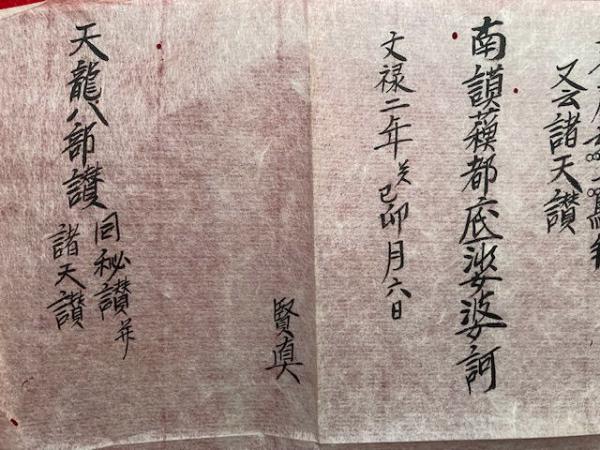 又云諸天讃
南謨蘓都底娑婆訶
文禄二年癸巳卯月六日
賢真
天龍八部讃
同秘讃并
諸天讃